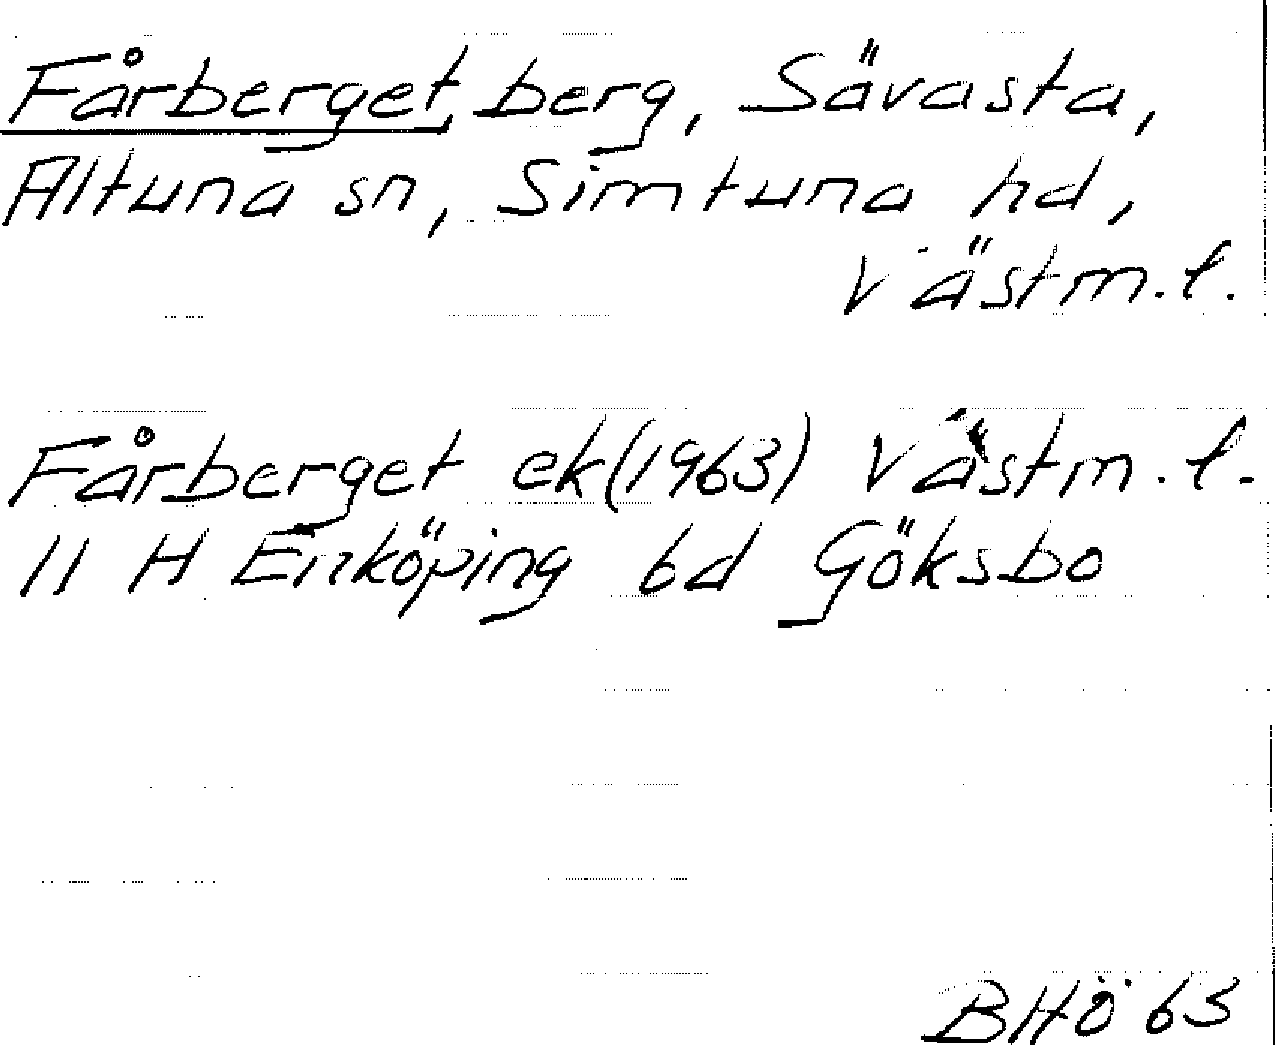 Fårberget, berg, Sävasta,
Altuna sn, Simtuna hd,
Västm.l.
Fårberget ek(1963) Västm.l.
11 H Enköping 6d Göksbo
BHÖ 63